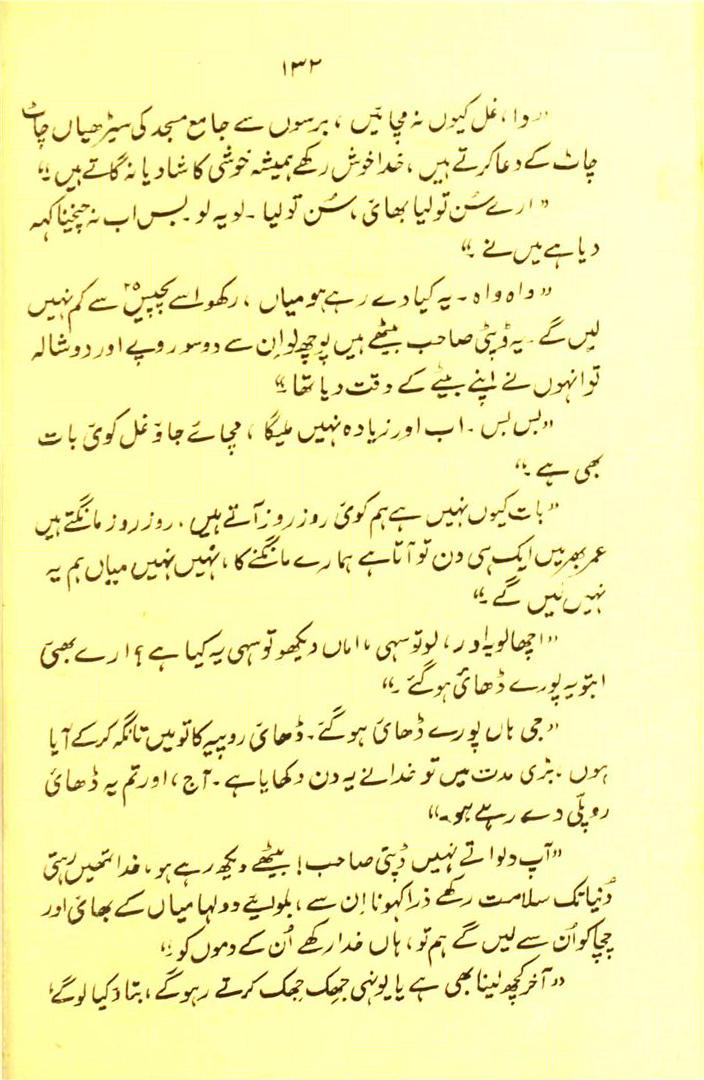 ۱۳۲
"وا، غل کیوں نہ مچائیں، برسوں سے جامع مسجد کی سیڑھیاں چاٹ
چاٹ کے دعا کرتے ہیں، خدا خوش رکھے ہمیشہ خوشی کا شادیانہ گاتے ہیں۔"
"ارے سُن تو لیا بھائی، سُن تو لیا۔ لو یہ لو۔ بس اب نہ چیخنا کہہ
دیا ہے میں نے۔"
"واہ واہ۔ یہ کیا دے رہے ہو میاں، رکھو اسے پچیس ۲۵ سے کم نہیں
لیں گے۔ یہ ڈپٹی صاحب بیٹھے ہیں پوچھ لو اِن سے دو سو روپے اور دوشالہ
تو انہوں نے اپنے بیٹے کے وقت دیا تھا۔"
"بس بس۔ اب اور زیادہ نہیں ملیگا، مچائے جاؤ غل کوئی بات
بھی ہے۔"
"بات کیوں نہیں ہے ہم کوئی روز روز آتے ہیں۔ روز روز مانگتے ہیں
عمر بھر میں ایک ہی دن تو آتا ہے ہمارے مانگنے کا، نہیں نہیں میاں ہم یہ
نہیں لیں گے۔"
"اچھا لو یہ اور، لو تو سہی، اماں دیکھو تو سہی یہ کیا ہے؟ ارے بھئی
ابتو یہ پورے ڈھائی ہو گئے۔"
"جی ہاں پورے ڈھائی ہو گئے۔ ڈھائی روپیہ کا تو میں تانگہ کر کے آیا
ہوں۔ بڑی مدت میں تو خدا نے یہ دن دکھایا ہے۔ آج، اور تم یہ ڈھائی
روپلّی دے رہے ہو۔"
"آپ دلواتے نہیں ڈپٹی صاحب! بیٹھے دیکھ رہے ہو، خدا تمھیں رہتی
دُنیا تک سلامت رکھے ذرا کہو نا اِن سے، بلوایئے دولہا میاں کے بھائی اور
چچا کو اُن سے لیں گے ہم تو، ہاں خدا رکھے اُن کے دموں کو۔"
"آخر کچھ لینا بھی ہے یا یونہی جھِک جھِک کرتے رہو گے، بتاؤ کیا لو گے؟